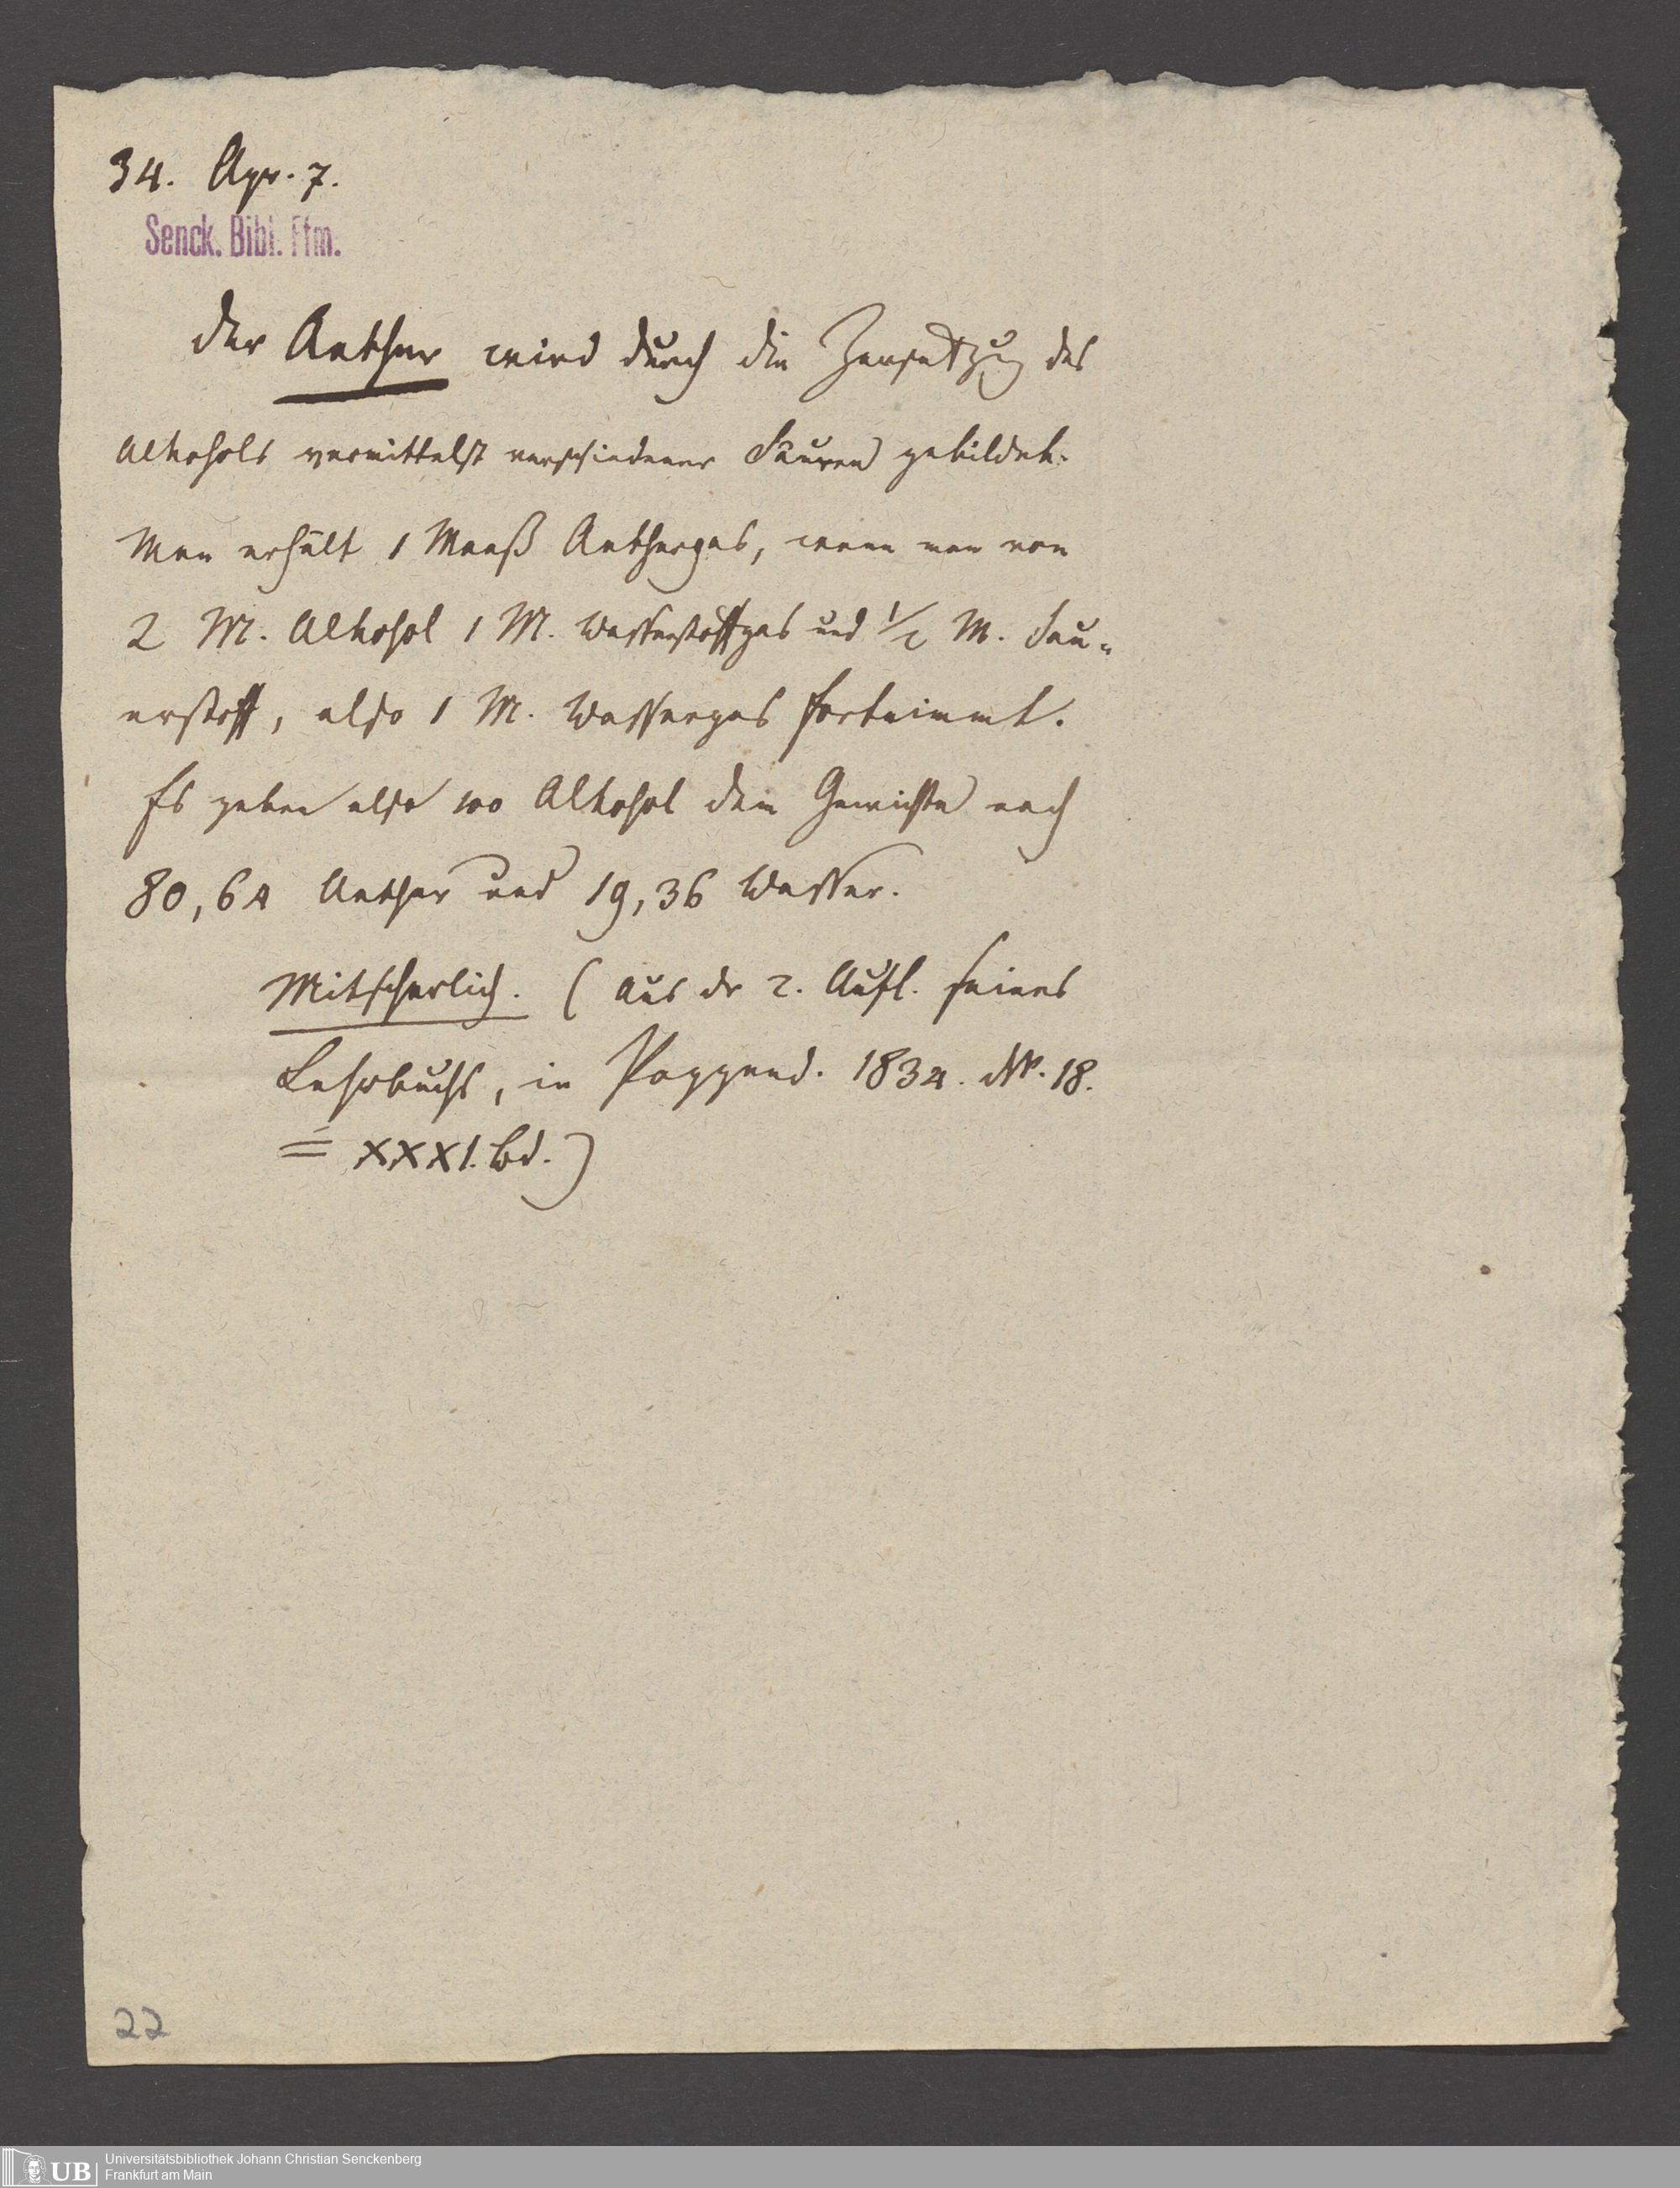 34. Apr. 7.
Senck. Bibl. Ffm.
Der Aether wird durch die Zersetzung des
Alkohols vermittelst verschiedener Säuren gebildet.
Man erhält 1 Maaß Aethergas, wenn man von
2 M. Alkohol 1 M. Wasserstoffgas und 1/2 M. Sau-
erstoff, also 1 M. Wassergas fortnimmt.
Es geben also 100 Alkohol dem Gewichte nach
80,64 Aether und 19,36 Wasser.
Mitscherlich. (Aus dr 2. Aufl. seines
Lehrbuchs, in Poggend. 1834. N. 18.
= XXXI. Bd.)
22
UB
Universitätsbibliothek Johann Christian Senckenberg
Frankfurt am Main